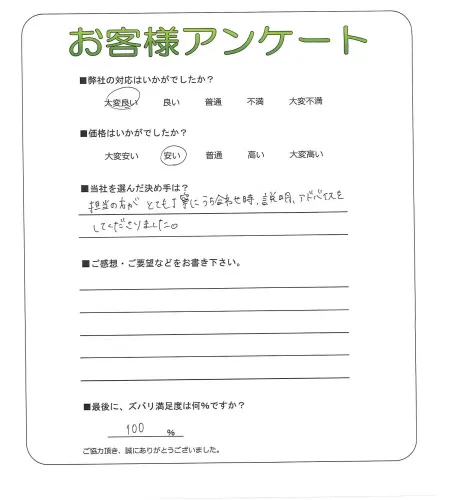 お客様アンケート
■弊社の対応はいかがでしたか?
大変良い 良い 普通 不満 大変不満
■価格はいかがでしたか?
大変安い 安い 普通 高い 大変高い
■当社を選んだ決め手は?
担当の方がとても丁寧にうち合わせ時、説明、アドバイスを
してくださりました。
■ご感想・ご要望などをお書き下さい。
■最後に、ズバリ満足度は何%ですか?
100 %
ご協力頂き、誠にありがとうございました。